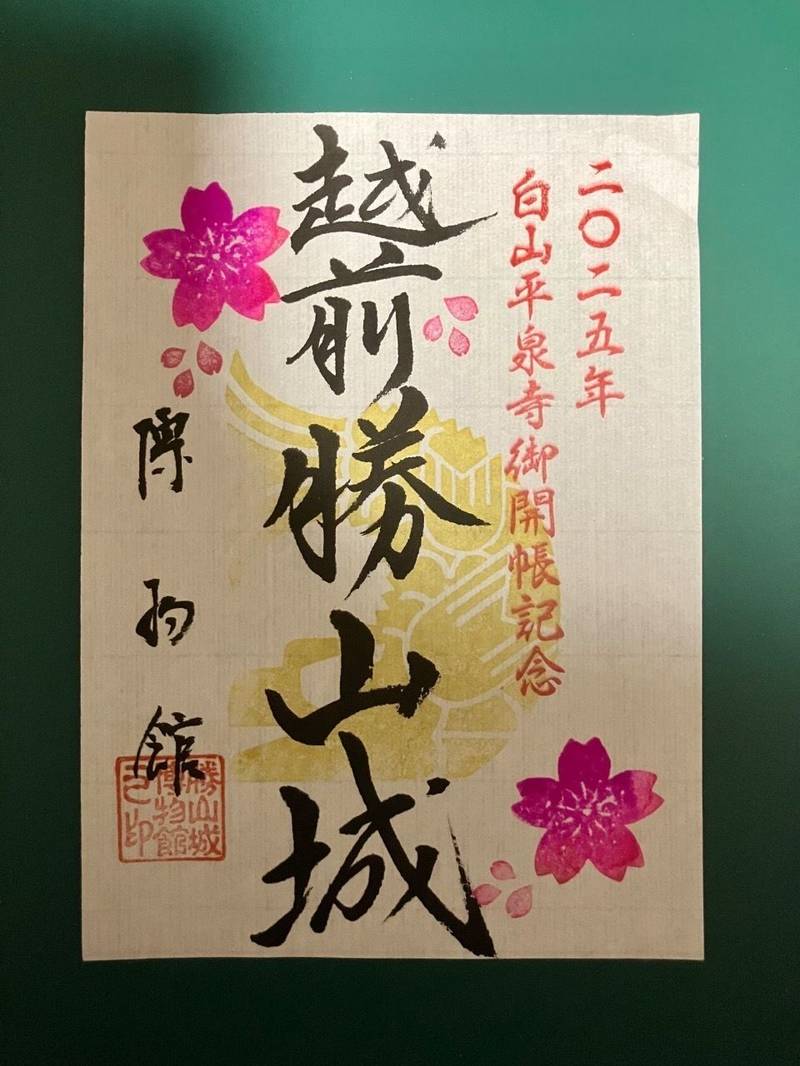 二〇二五年
白山平泉寺御開帳記念
越前勝山城
博物館
勝山城
博物館
之印